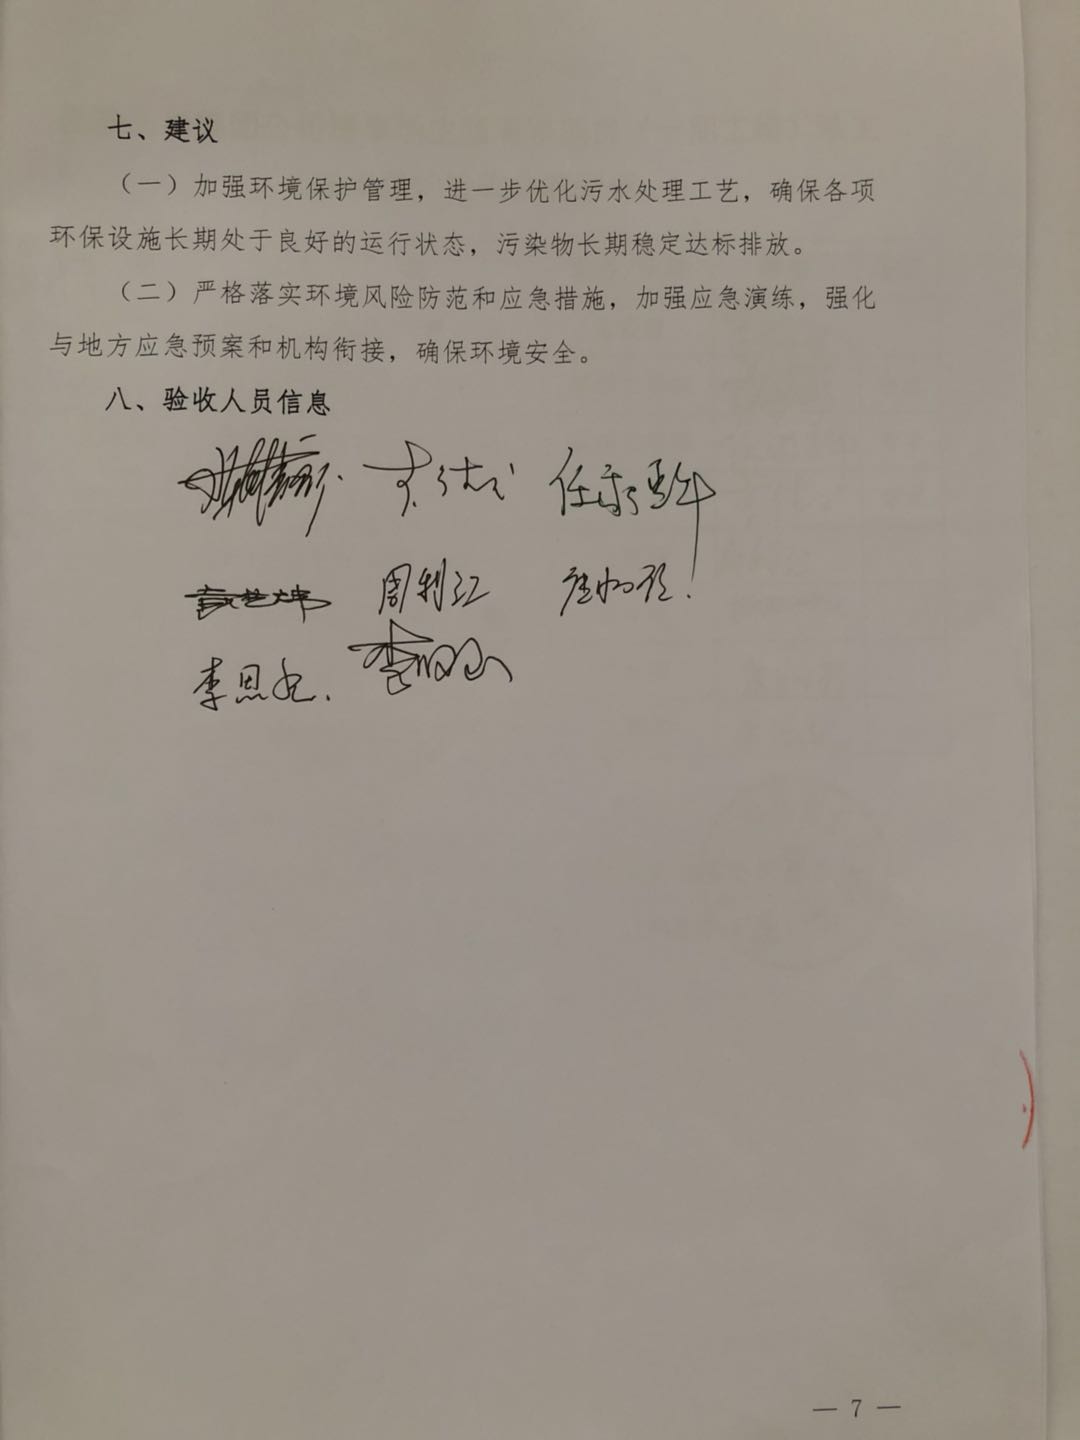 七、建议
（一）加强环境保护管理，进一步优化污水处理工艺，确保各项
环保设施长期处于良好的运行状态，污染物长期稳定达标排放。
（二）严格落实环境风险防范和应急措施，加强应急演练，强化
与地方应急预案和机构衔接，确保环境安全。
八、验收人员信息
周利江
— 7 —